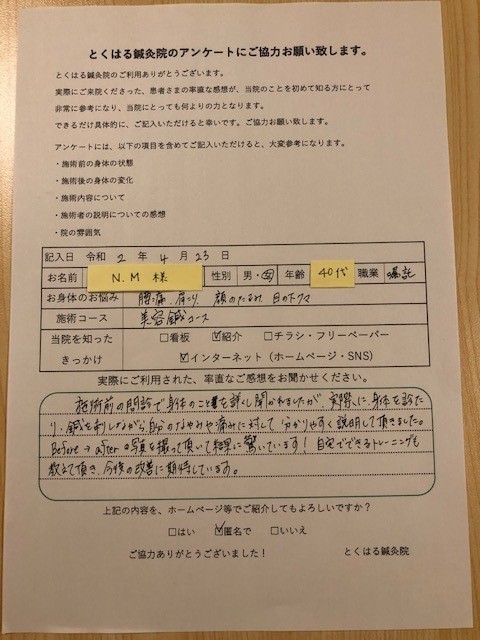 とくはる鍼灸院のアンケートにご協力お願い致します。
とくはる鍼灸院のご利用ありがとうございます。
実際にご来院くださった、患者さまの率直な感想が、当院のことを初めて知る方にとって
非常に参考になり、当院にとっても何よりの力となります。
できるだけ具体的に、ご記入いただけると幸いです。ご協力お願い致します。
アンケートには、以下の項目を含めてご記入いただけると、大変参考になります。
・施術前の身体の状態
・施術後の身体の変化
・施術内容について
・施術者の説明についての感想
・院の雰囲気
記入日 令和 2 年 4 月 23 日
お名前 N.M 様 性別 男・女 年齢 40代 職業 嘱託
お身体のお悩み 腰痛、肩こり、顔のたるみ、目の下クマ
施術コース 美容鍼コース
当院を知った □看板 ☑紹介 □チラシ・フリーペーパー
きっかけ ☑インターネット（ホームページ・SNS）
実際にご利用された、率直なご感想をお聞かせください。
施術前の問診で身体のことを詳しく聞かれましたが、実際に、身体を診た
り、鍼を刺しながら、自分のなやみや痛みに対して分かりやすく説明して頂きました。
Before → afterの写真を撮って頂いて結果に驚いています！自宅でできるトレーニングも
教えて頂き、今後の改善に期待しています。
上記の内容を、ホームページ等でご紹介してもよろしいですか？
□はい ☑匿名で □いいえ
ご協力ありがとうございました！ とくはる鍼灸院